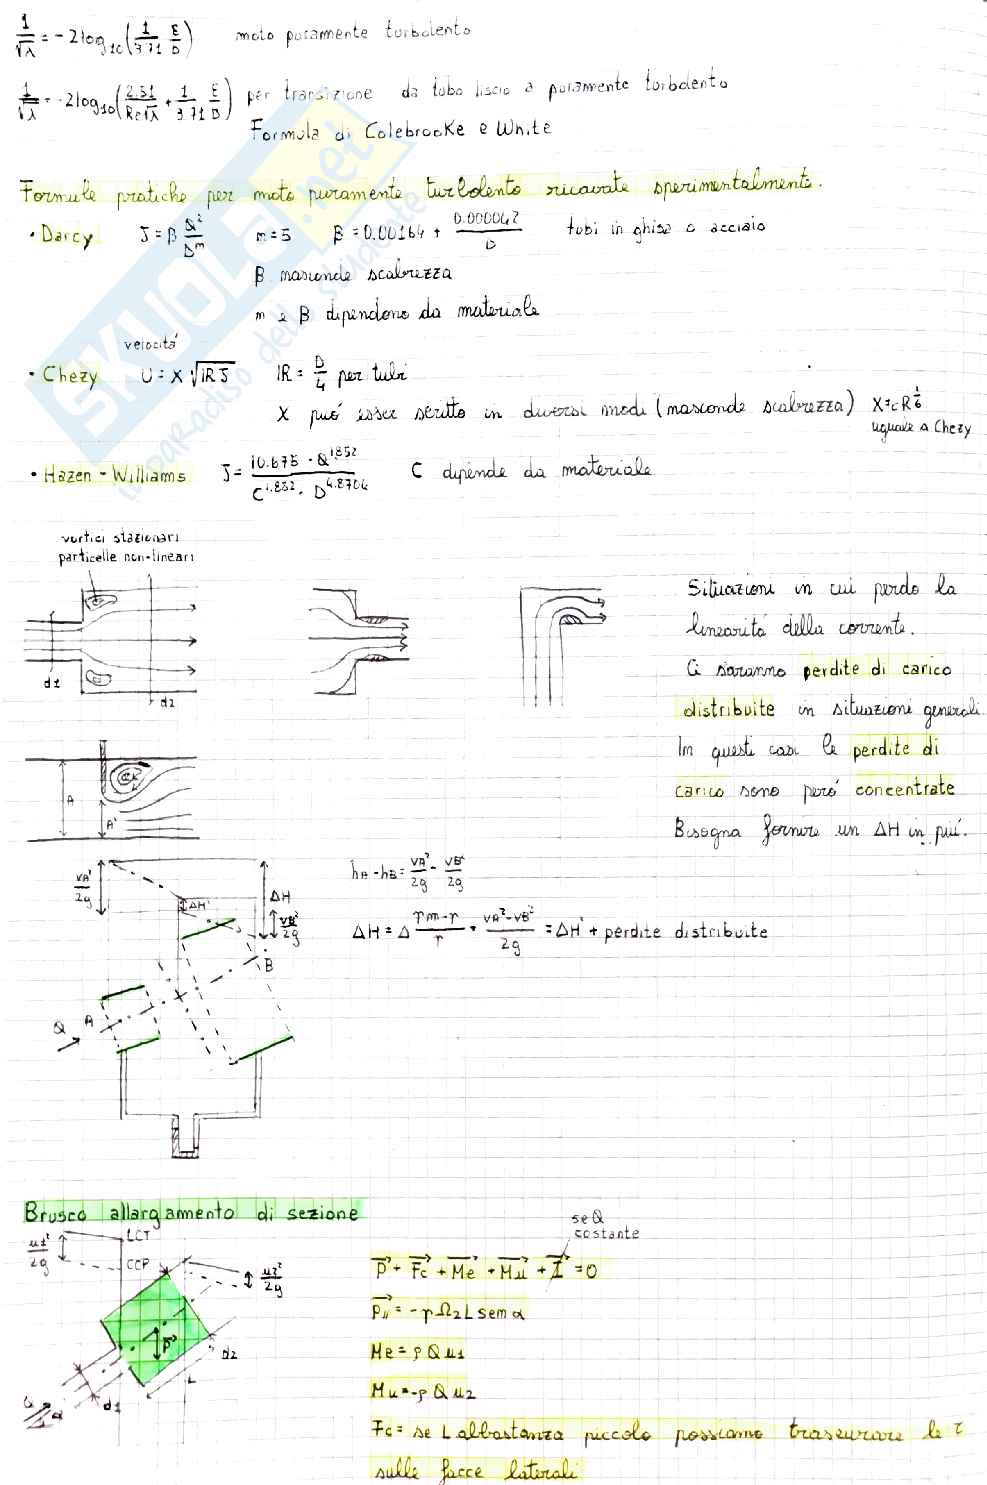 1/√λ = -2log10(1/3.71 ε/D) moto puramente turbolento
1/√λ = -2log10(2.51/Re√λ + 1/3.71 ε/D) per transizione da tubo liscio a puramente turbolento
Formula di Colebrooke e White
Formule pratiche per moto puramente turbolento ricavate sperimentalmente.
• Darcy J = β Q²/D^m m=5 β = 0.00164 + 0.000042/D tubi in ghisa o acciaio
β nasconde scabrezza
m e β dipendono da materiale
velocità
• Chezy U = X √(IR J) IR = D/4 per tubi
X può esser scritto in diversi modi (nasconde scabrezza) X=cR^1/6
uguale a Chezy
• Hazen - Williams J = 10.675 · Q^1.852 / C^1.852 · D^4.8704 C dipende da materiale
vortici stazionari
particelle non-lineari
d1
d2
Situazioni in cui perdo la
linearità della corrente.
Ci saranno perdite di carico
distribuite in situazioni generali.
In questi casi le perdite di
carico sono però concentrate
Bisogna fornire un ΔH in più.
A
A'
vA²/2g
ΔH
ΔH'
vB²/2g
hA - hB = vA²/2g - vB²/2g
ΔH = Δ γm-γ/γ + vA²-vB²/2g = ΔH' + perdite distribuite
B
A
Q
Brusco allargamento di sezione
se Q
costante
u1²/2g
LCT
CCP
u2²/2g
P
d2
L
d1
Q
α
P + Fc + Me + Mu + I = 0
P// = -γ Ω2 L sen α
Me = ρ Q u1
Mu = -ρ Q u2
Fc = se L abbastanza piccolo possiamo trascurare le τ
sulle facce laterali
SKUOLA.net
il paradiso dello studente